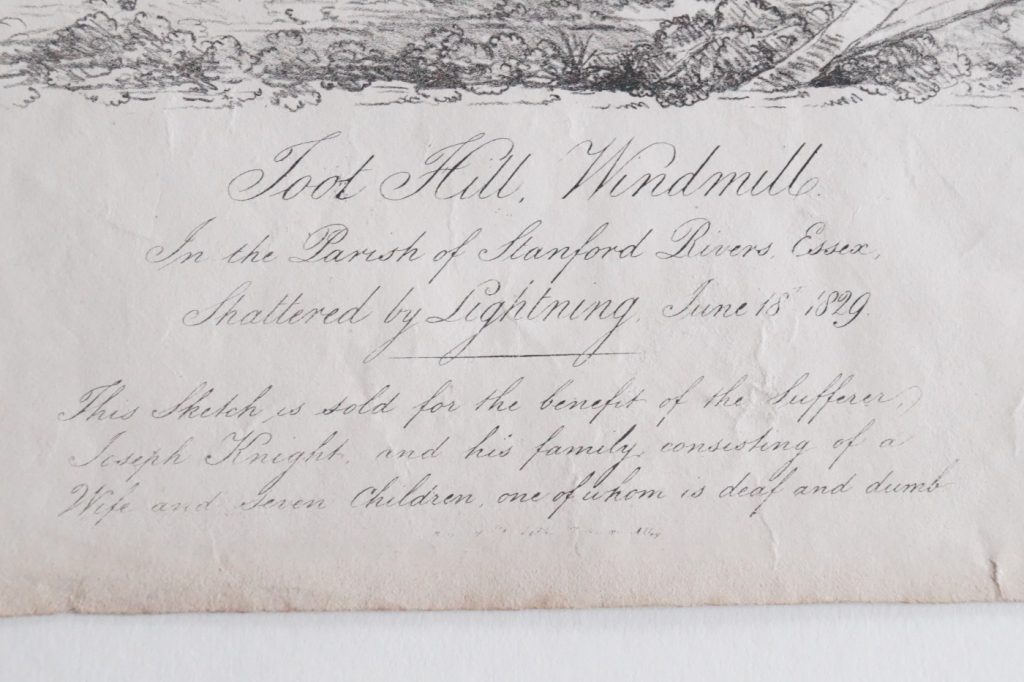 Toot Hill, Windmill.
In the Parish of Stanford Rivers, Essex,
Shattered by Lightning, June 18th 1829.
This Sketch is sold for the benefit of the Sufferer,
Joseph Knight, and his family, consisting of a
Wife and Seven Children, one of whom is deaf and dumb